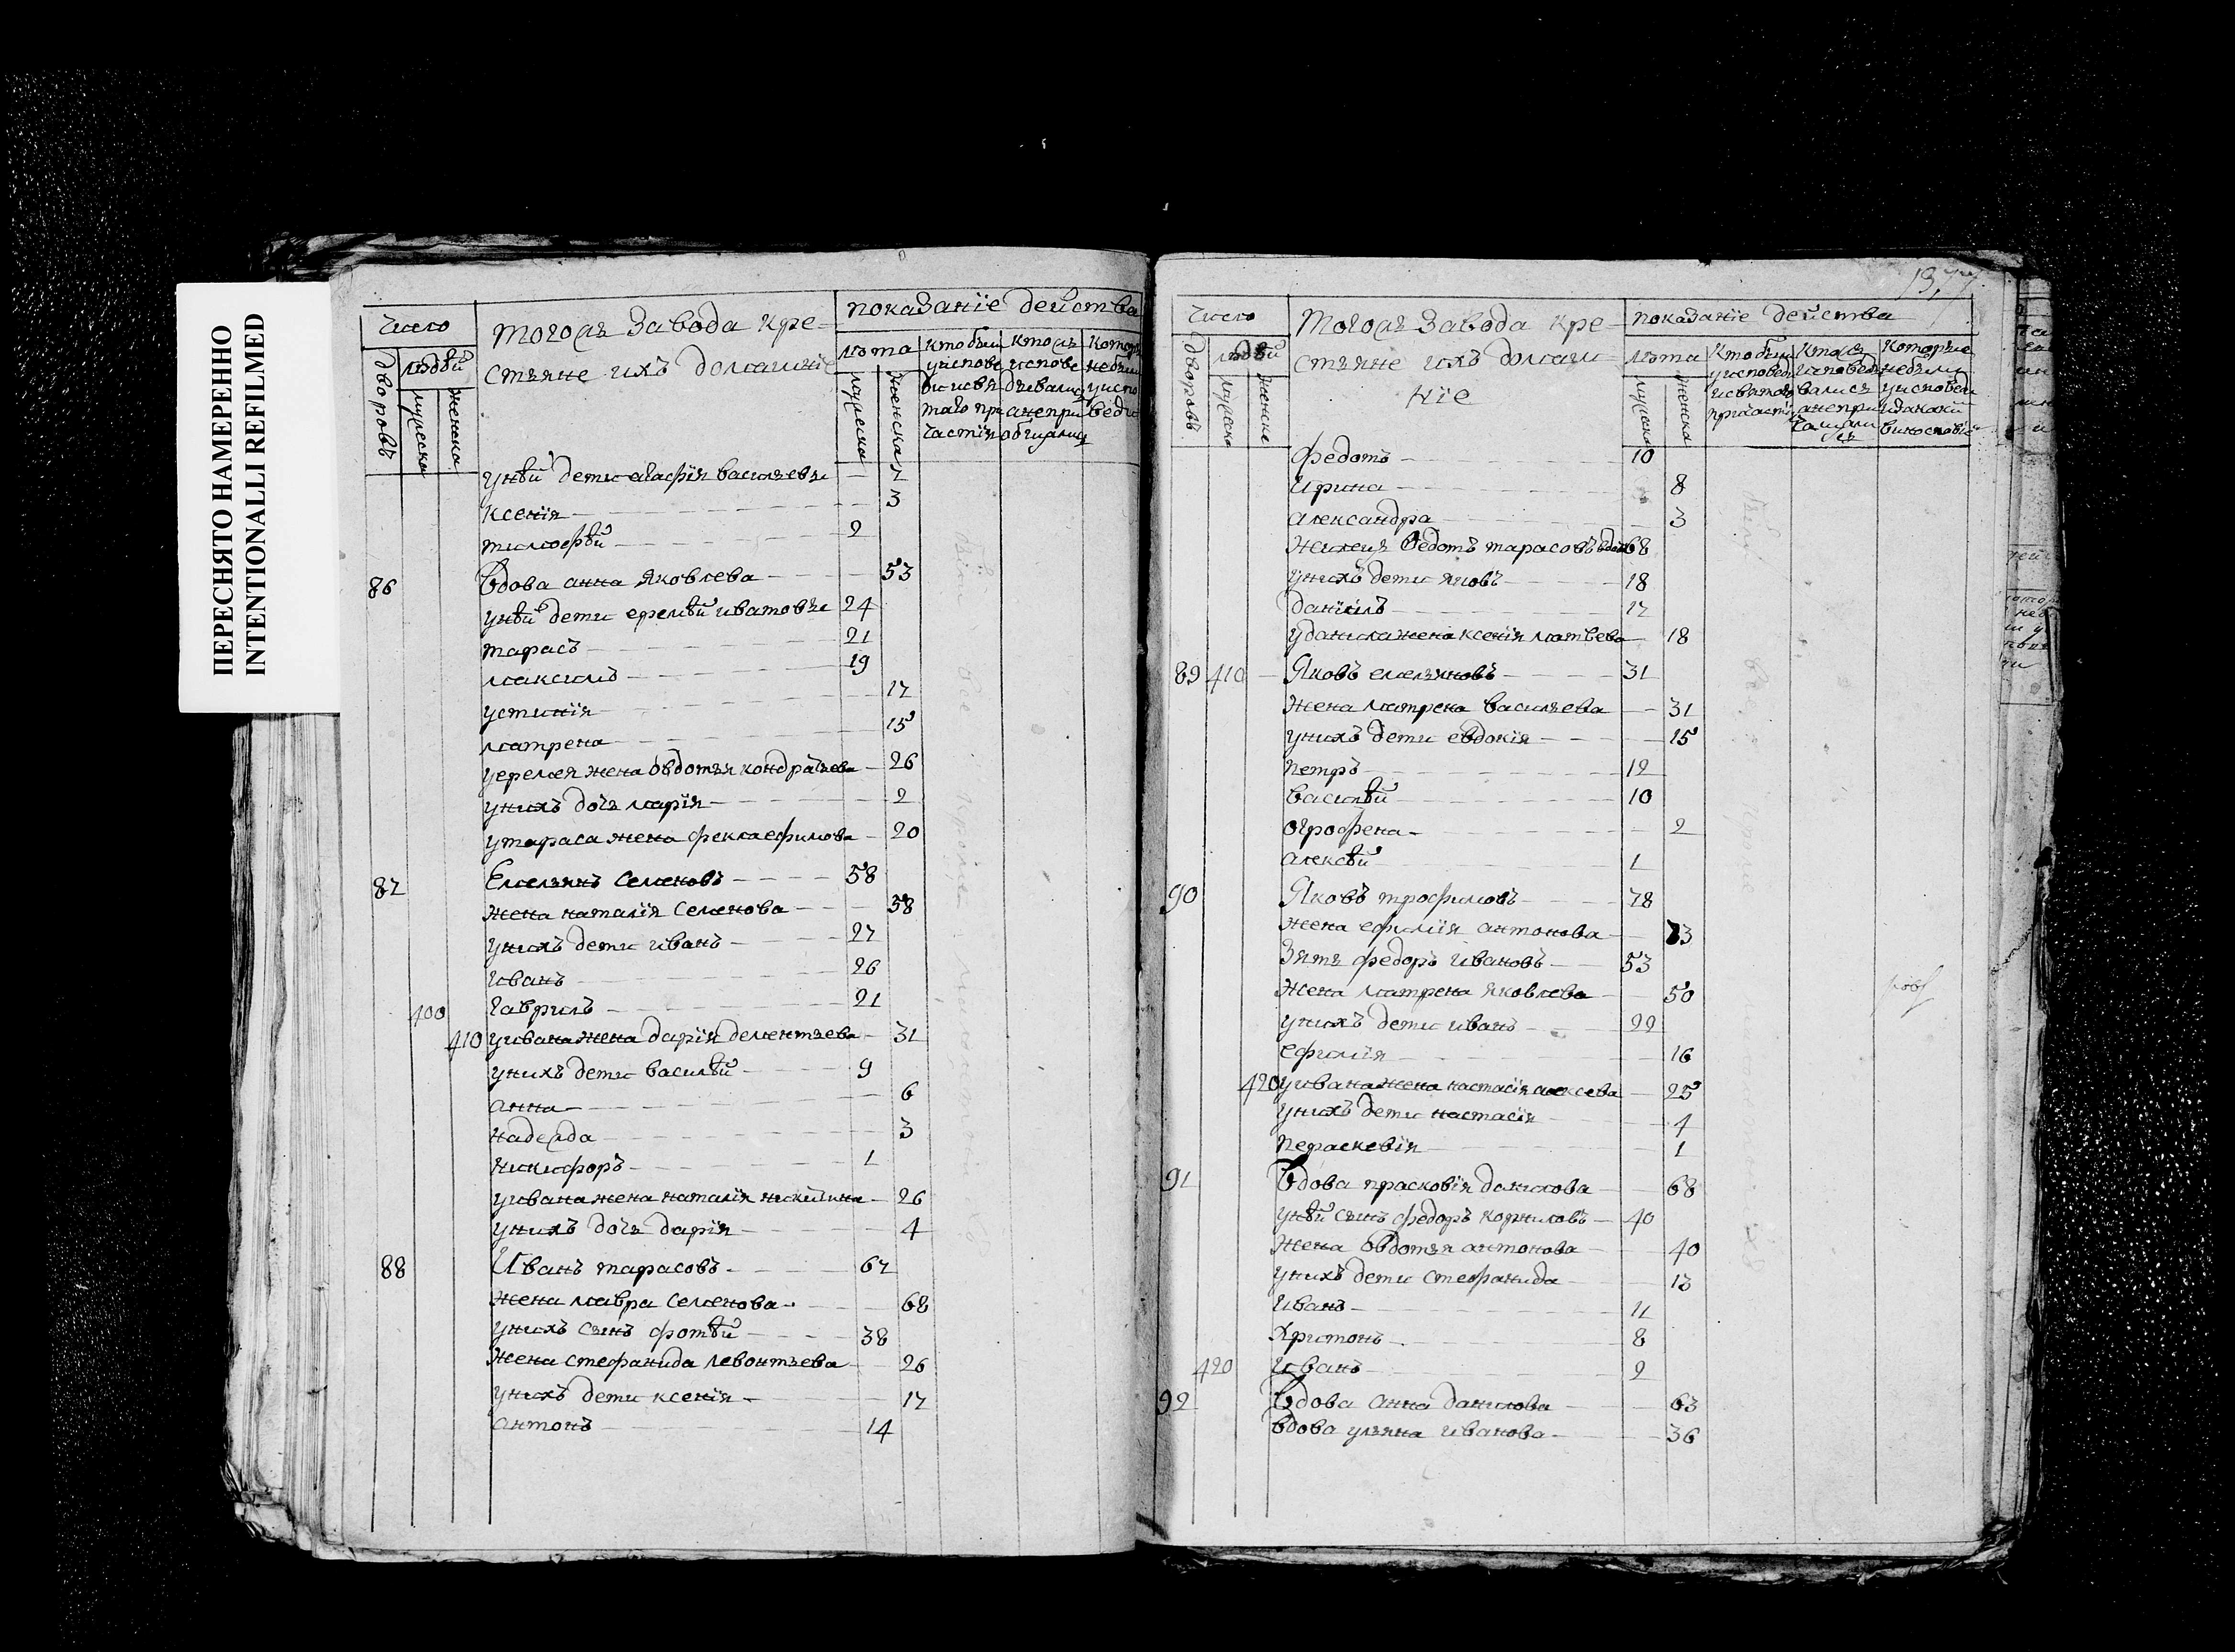 ПЕРЕСНЯТО НАМЕРЕННО
INTENTIONALLI REFILMED
Число
дворовъ
людѣй
мужеска
женска
тогожъ завода кре-
стъяне ихъ домашніе
показаніе действа
лѣта
мужеска
женска
кто был
уиспове
ди исвя
таго при
частія
ктожъ
испове
дывалис
анепри
общилис
Которы
небыли
уиспо
веди
унѣй дети агафія василъевы 7
ксенія 3
тимофѣй 2
86 Вдова анна яковлева 53
унѣй дети еремѣй ипатовы 24
тарасъ 21
максимъ 19
устинія 17
матрена 15
уеремея жена овдотья кондратъева 26
унихъ дочь марія 2
утараса жена фекла ефимова 20
87 Емелъянъ Семеновъ 58
жена наталія семенова 58
унихъ дети иванъ 27
иванъ 26
400 гаврилъ 21
410 уивана жена дарія дементъева 31
унихъ дети василѣй 9
анна 6
надежда 3
никифоръ 1
уивана жена наталія никитина 26
унихъ дочь дарія 4
88 Иванъ тарасовъ 67
жена мавра семенова 68
унихъ сынъ фотѣй 38
жена стефанида левонтъева 26
унихъ дети ксенія 17
антонъ 14
Число
дворовъ
людѣй
мужеска
женске
тогожъ завода кре-
стъяне ихъ домаш
ніе
показаніе действа
лѣта
мужеска
женска
Кто был
уисповед
исвятаго
причастія
Ктожъ
исповеды
валисъ
анепри
чащали
съ
Которые
небыли
уисповеди
федотъ 10
ирина 8
александра 3
жилецъ Федотъ тарасовъ вдовъ 68
унихъ дети яковъ 18
даніилъ 17
уданила жена ксенія матвева 18
89 410 Яковъ емелъяновъ 31
жена матрена василъева 31
унихъ дети евдокія 15
петръ 12
василѣй 10
огрофена 2
алексѣй 1
90 Яковъ трофимовъ 78
жена ефимія антонова 73
Зять федоръ ивановъ 53
жена матрена яковлева 50
унихъ дети иванъ 22
ефимія 16
420 уивана жена настасія алексева 25
унихъ дети настасія 4
пераскевія 1
91 Вдова прасковія данилова 68
унѣй сынъ федоръ корниловъ 40
жена овдотья антонова 40
унихъ дети стефанида 13
иванъ 11
Христонъ 8
420 иванъ 2
92 Вдова анна данилова 63
вдова улъяна иванова 36